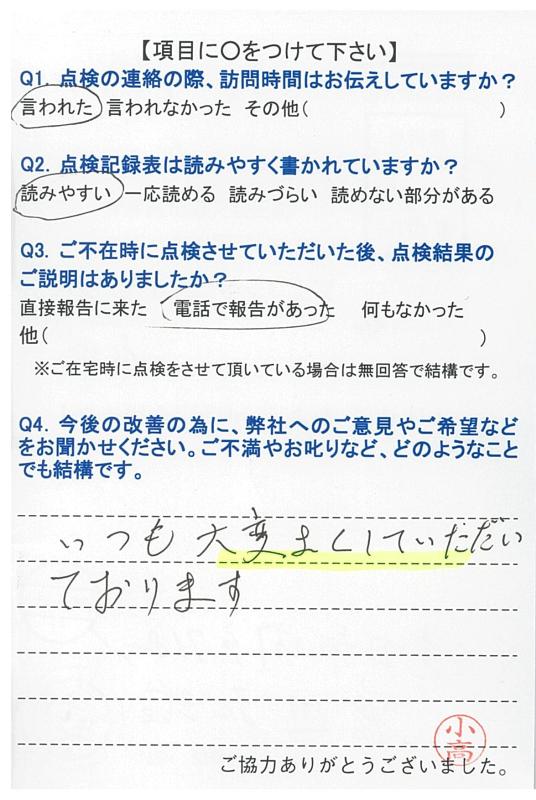 【項目に〇をつけて下さい】
Q1. 点検の連絡の際、訪問時間はお伝えしていますか？
言われた 言われなかった その他( )
Q2. 点検記録表は読みやすく書かれていますか？
読みやすい 一応読める 読みづらい 読めない部分がある
Q3. ご不在時に点検させていただいた後、点検結果の
ご説明はありましたか？
直接報告に来た 電話で報告があった 何もなかった
他( )
※ご在宅時に点検をさせて頂いている場合は無回答で結構です。
Q4. 今後の改善の為に、弊社へのご意見やご希望など
をお聞かせください。ご不満やお叱りなど、どのようなこと
でも結構です。
いつも大変よくしていただい
ております
小高
ご協力ありがとうございました。